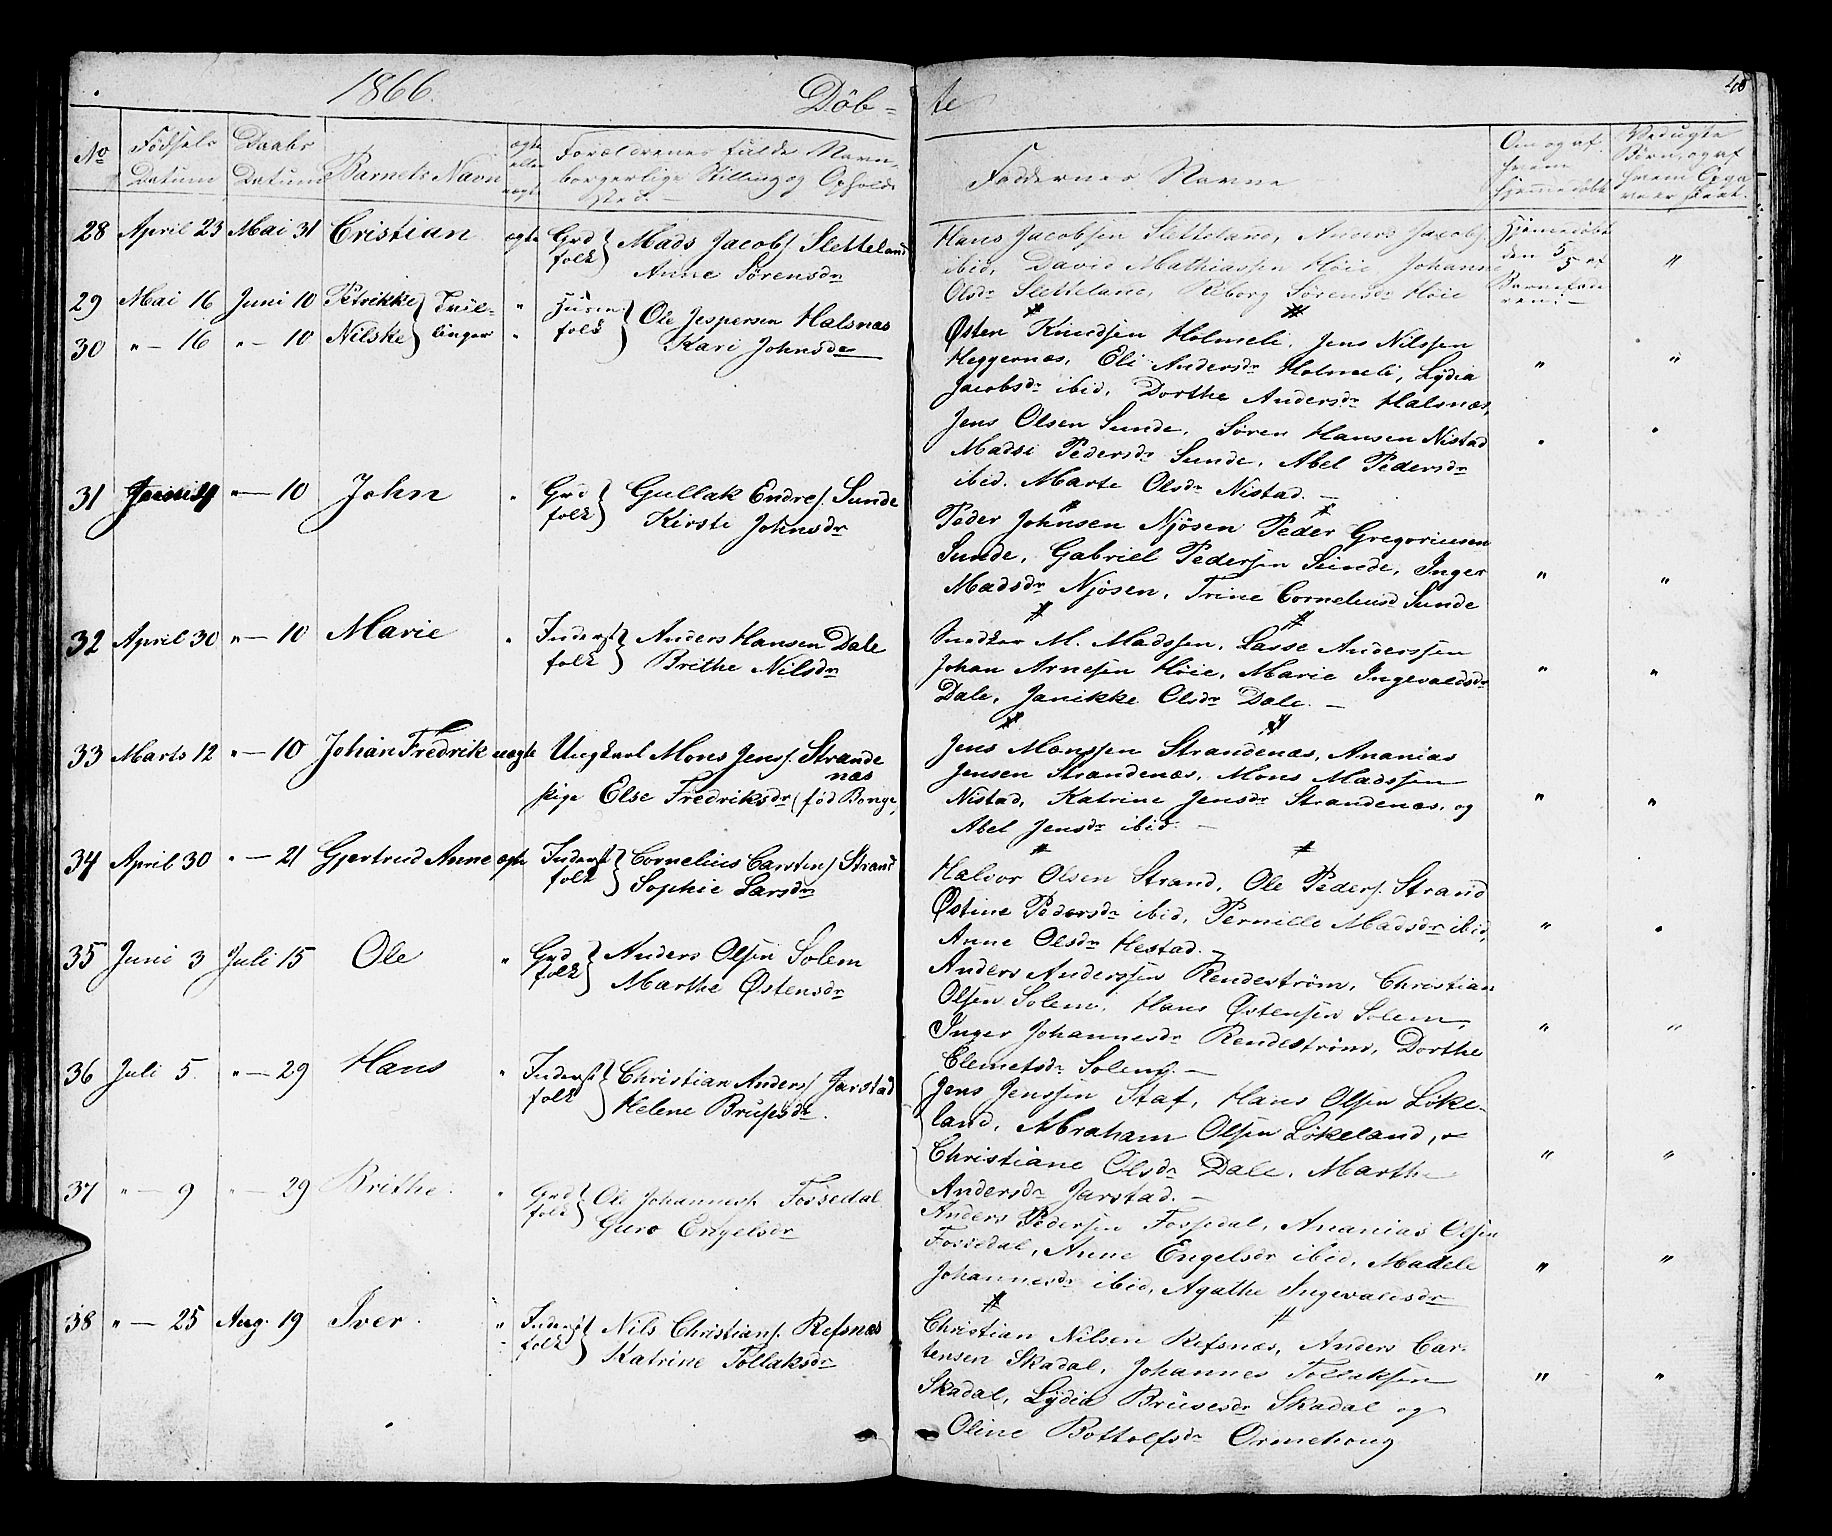 1866.
Döb-
te
48
No
Fødsels Datum
Daabs Datum
Barnets Navn
ægte eller uægte
Forældrenes fulde Navn, borgerlige Stilling og Opholdssted.
Faddernes Navne
Om og af hvem hjemmedøbt
28 April 23 Mai 31 Cristian ægte Grd folk } Mads Jacobs. Sletteland
Anne Sørensdr
Hans Jacobsen Sletteland, Anders Jacobs.
ibid, David Mathiassen Høie Johanne
Olsdr Sletteland, Sørensdr Høie
Hjemmedøbt
den 5/5 af
Barnefaderen. —
"
29 Mai 16 Juni 10 Petrikke } Tvil-
30 " — 16 " — 10 Nilske } linger
" Husm folk } Ole Jespersen Halsnæs
Kari Johnsdr
Østen Knudsen Holmeli, Jens Nilssen
Heggernæs, Eli Andersdr Holmeli, Lydia
Jacobsdr ibid, Dorthe Andersdr Halsnæs,
Jens Olsen Sunde, Søren Hansen Nistad
Madsi Pedersdr Sunde, Abel Pedersdr
ibid. Marte Olsdr Nistad. —
31 " — 10 John " Grd folk } Gullak Endres. Sunde
Kirsti Johnsdr
Peder Johnsen Njøsen Peder Gregoriusen
Sunde, Gabriel Pedersen Sunde, Inger
Madsdr Njøsen, Trine Corneliusd Sunde
32 April 30 " — 10 Marie " Inderst folk } Anders Hansen Dale
Brithe Nilsdr
Snedker M. Madssen, Lasse Anderssen
Johan Arnesen Høie, Marie Ingevaldsdr
Dale, Janikke Olsdr Dale. —
33 Marts 12 " — 10 Johan Fredrik uægte Ungkarl Mons Jens. Strande
næs
Pige Else Fredriksdr (fød Borge,
Jens Monssen Strandenæs, Ananias
Jensen Strandenæs, Mons Madssen
Nistad, Katrine Jensdr Strandenæs, og
Abel Jensdr ibid. —
34 April 30 " — 21 Gjertrud Anne ægte Inderst folk } Cornelius Carstens. Strand
Sophie Larsdr
Halvor Olsen Strand, Ole Peders. Strand
Østine Pedersdr ibid, Pernille Madsdr ibid,
Anne Olsdr Hestad. —
35 Juni 3 Juli 15 Ole " Grd folk } Anders Olsen Solem
Marthe Østensdr
Anders Anderssen Rendestrøm, Christian
Olsen Solem, Hans Østensen Solem,
Inger Johannesdr Rendestrøm, Dorthe
Clemetsdr Solem. —
36 Juli 5. " — 29 Hans " Inderst folk } Christian Anders. Jarstad
Helene Brusesdr.
Jens Jenssen Staf, Hans Olsen Løke-
land, Abraham Olsen Løkeland,
Christiane Olsdr Dale, Marthe
Andersdr Jarstad. —
37 " — 9 " — 29 Brithe. " Grd folk } Ole Johanness. Fossedal
Guro Engelsdr
Anders Pedersen Fossedal, Ananias Olsen
Fossedal, Anne Engelsdr ibid, Madele
Johannesdr ibid, Agathe Ingevaldsdr
38 " — 25 Aug. 19 Iver. " Inderst folk } Nils Christians. Refsnæs
Katrine Tollaksdr
Christian Nilsen Refsnæs, Anders Car-
tensen Skadal, Johannes Tollaksen
Skadal, Lydia Brusesdr Skadal og
Oline Bottolfsdr Ormehoug